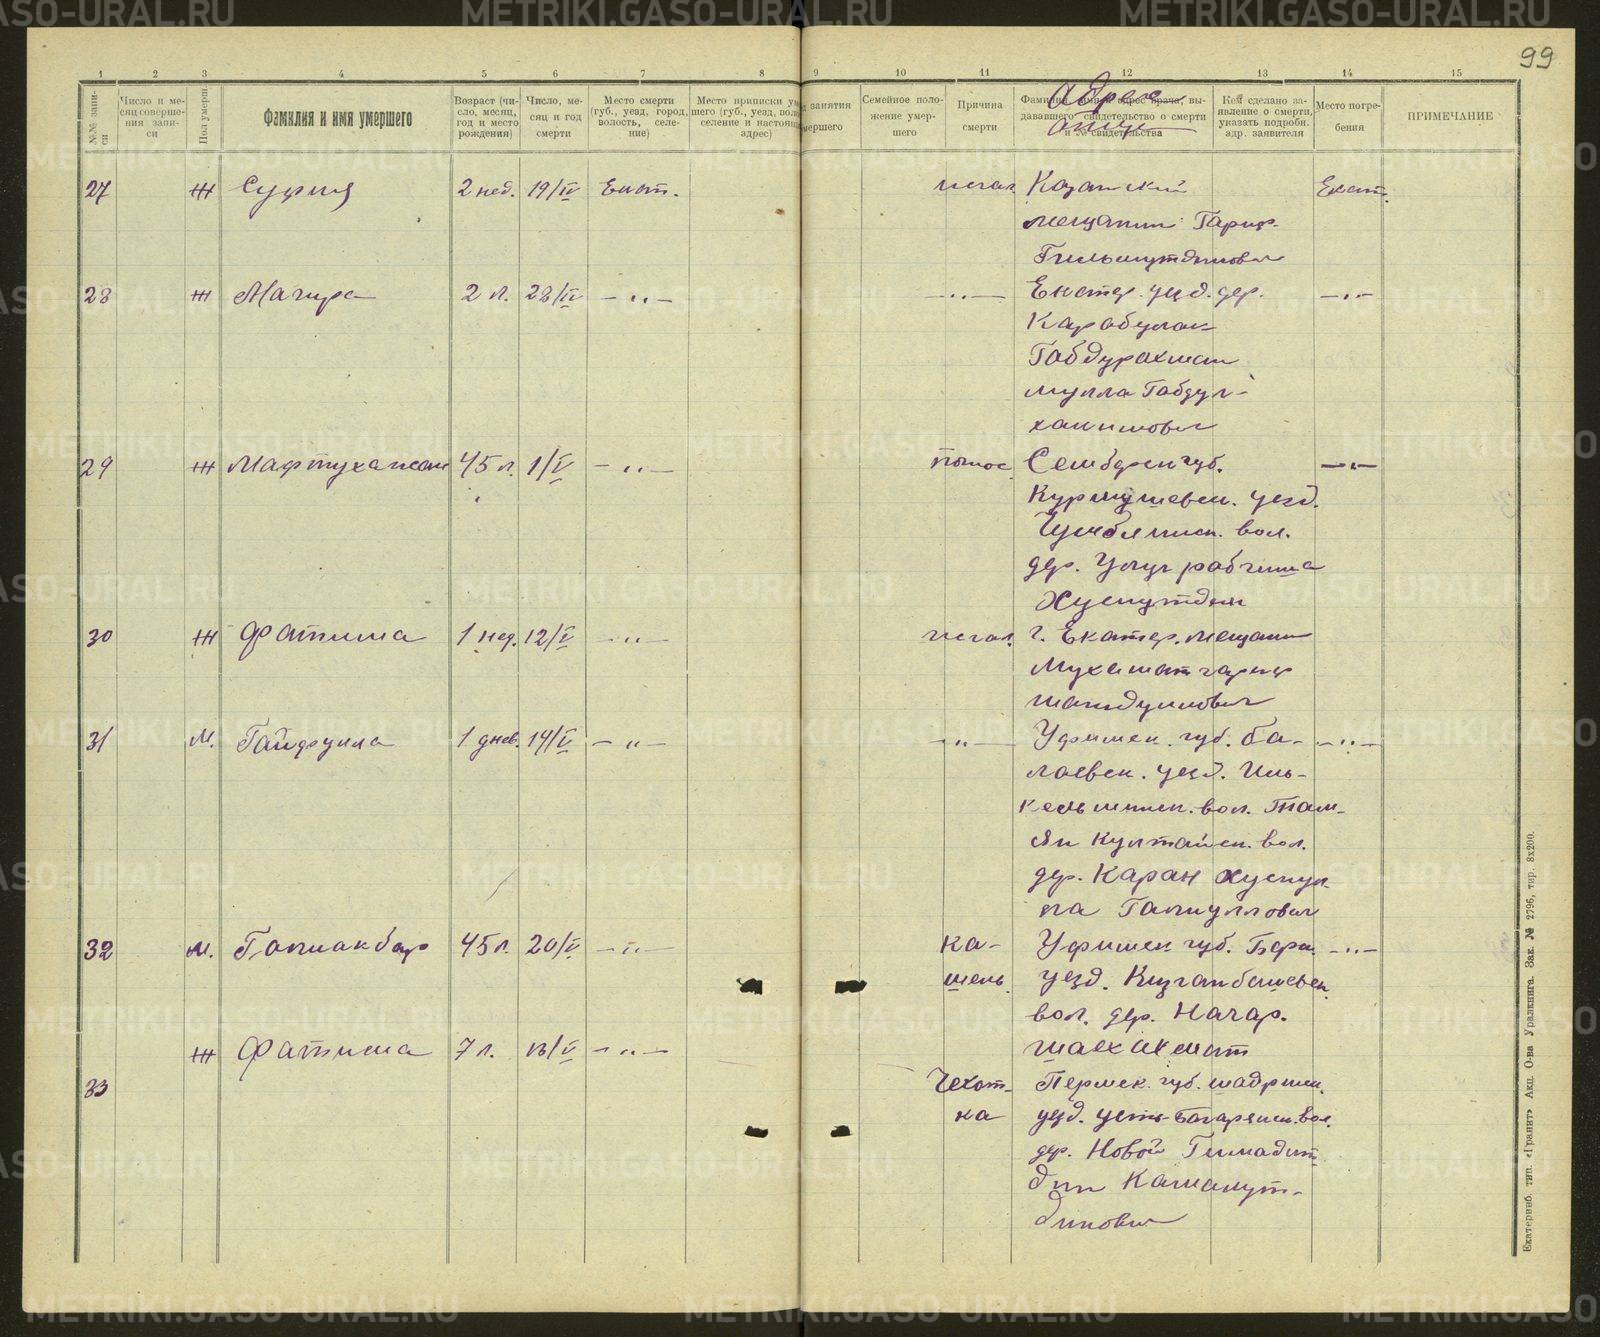 99
1 2 3 4 5 6 7 8 9 10 11 12 13 14 15
№№ запи-
си
Число и ме-
сяц соверше-
ния запи-
си
Пол умерш.
Фамилия и имя умершего
Возраст (чи-
сло, месяц,
год и место
рождения)
Число, ме-
сяц и год
смерти
Место смерти
(губ., уезд, город,
волость, селе-
ние)
Место приписки
шего (губ., уезд,
селение и
адрес)
занятия
умершего
Семейное поло-
жение умер-
шего
Причина
смерти
Фамилия адрес врача, вы-
дававшего свидетельство о смерти
и № свидетельства
Адрес
отца
Кем сделано за-
явление о смерти,
указать подробн.
адр. заявителя
Место погре-
бения
ПРИМЕЧАНИЕ
27 Ж Суфия 2 нед. 19/IV Екат. Казанский Екат.
мещанин Гариф
Гильмутдинович
28 Ж Магира 2 л. 28/IV — „ — — „ — Екатер. уезд. дер. — „ —
Карабулак
Габдурахман
мулла Габдул-
хакимович
29 Ж 45 л. 1/V — „ — понос Сембрен губ. — „ —
Курмушевск. уезд.
вол.
дер.
Хуснутдин
30 Ж Фатима 1 нед. 12/V — „ — г. Екатер. мещанин
Мухаматгариф
31 М. Гайфулла 1 днев. 14/V — „ — — „ — Уфимск. губ. Бе- — „ —
лаевск. уезд. Иль-
вол. Там-
ян Култайск. вол.
дер. Каран Хуснул-
ла
32 М. 45 л. 20/V — „ — ка- Уфимск губ. Бирс. — „ —
шель уезд.
вол. дер. Качар.
Шаехахмат
Ж Фатима 7 л. — „ —
33 Чехот- Пермск. губ. шадринск.
ка уезд. усть-Багарякск. вол.
дер. Новой Гимадит-
дин Камалут-
динович
Екатеринб. тип. «Гранит» Акц. О-ва Уралкнига. Зак. № 2796, тир. 8х200.
METRIKI.GASO-URAL.RU